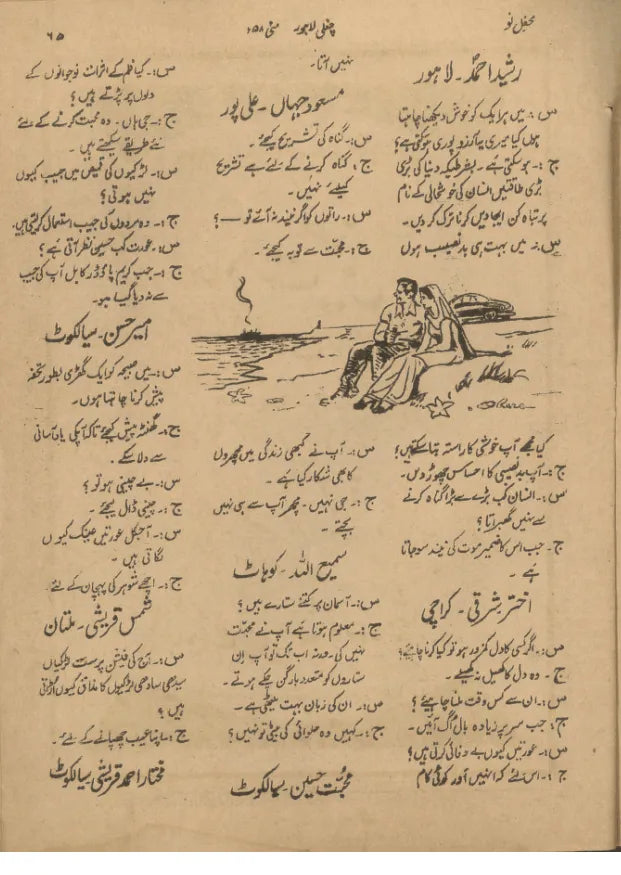 محفلِ نو
چغلی لاہور مئی ۵۸ء
۶۵
رشید احمد ۔ لاہور
س :۔ میں ہر ایک کو خوش دیکھنا چاہتا
ہوں کیا میری یہ آرزو پوری ہو سکتی ہے؟
ج :۔ ہو سکتی ہے ۔ بشرطیکہ دنیا کی بڑی
بڑی طاقتیں انسان کی خوشحالی کے نام
پر تباہ کن ایجادیں کرنا ترک کر دیں ۔
س :۔ میں بہت ہی بدنصیب ہوں
کیا مجھے آپ خوشی کا راستہ بتا سکتے ہیں؟
ج :۔ آپ بدنصیبی کا احساس چھوڑ دیں ۔
س :۔ انسان کب بڑے سے بڑا گناہ کرنے
سے نہیں گھبراتا ؟
ج ۔ جب اس کا ضمیر موت کی نیند سو جاتا
ہے ۔
اختر شرقی ۔ کراچی
س :۔ اگر کسی کا دل کمزور ہو تو کیا کرنا چاہیئے؟
ج ۔ وہ دل کا کھیل نہ کھیلے ۔
س :۔ ان سے کس وقت ملنا چاہیئے ؟
ج :۔ جب سر پر زیادہ بال اُگ آئیں ۔
س :۔ عورتیں کیوں بے وفائی کرتی ہیں؟
ج :۔ اس لئے کہ انہیں اور کوئی کام
نہیں آتا ۔
مسعود جہاں ۔ علی پور
س :۔ گناہ کی تشریح کیجئے ۔
ج :۔ گناہ کرنے کے لئے ہے تشریح
کیلئے نہیں ۔
س :۔ راتوں کو اگر نیند نہ آئے تو — ؟
ج :۔ محبت سے توبہ کیجئے ۔
س :۔ آپ نے کبھی زندگی میں مچھروں
کا بھی شکار کیا ہے ۔
ج :۔ جی نہیں ۔ مچھر آپ سے ہی نہیں
بچتے ۔
سمیع اللہ ۔ کوہاٹ
س :۔ آسمان پر کتنے ستارے ہیں ؟
ج :۔ معلوم ہوتا ہے آپ نے محبت
نہیں کی ۔ ورنہ اب تک تو آپ ان
ستاروں کو متعدد بار گن چکے ہوتے ۔
س :۔ ان کی زبان بہت میٹھی ہے ۔
ج :۔ کہیں وہ حلوائی کی بیٹی تو نہیں ؟
محبت حسین ۔ سیالکوٹ
س :۔ کیا فلم کے اثرات نوجوانوں کے
دلوں پر پڑتے ہیں ؟
ج :۔ جی ہاں ۔ وہ محبت کرنے کے لئے
نئے طریقے سیکھتے ہیں ۔
س :۔ لڑکیوں کی قمیض میں جیب کیوں
نہیں ہوتی ؟
ج :۔ وہ مردوں کی جیب استعمال کر لیتی ہیں۔
س :۔ عورت کب حسین نظر آتی ہے ؟
ج :۔ جب کریم پاؤڈر کا بل آپ کی جیب
سے نہ دیا گیا ہو ۔
امیر حسن ۔ سیالکوٹ
س :۔ میں صبیحہ کو ایک گھڑی بطور تحفہ
پیش کرنا چاہتا ہوں ۔
ج :۔ گھنٹہ پیش کیجئے تاکہ آپکی یاد آسانی
سے دلا سکے ۔
س :۔ بے چینی ہو تو ؟
ج :۔ چینی ڈال لیجئے ۔
س :۔ آجکل عورتیں عینک کیوں
لگاتی ہیں ۔
ج :۔ اچھے شوہر کی پہچان کے لئے ۔
شمس قریشی ۔ ملتان
س :۔ آج کی فیشن پرست لڑکیاں
سیدھی سادھی لڑکیوں کا مذاق کیوں اڑاتی
ہیں ؟
ج :۔ اپنا عیب چھپانے کے لئے ۔
مختار احمد قریشی ۔ سیالکوٹ